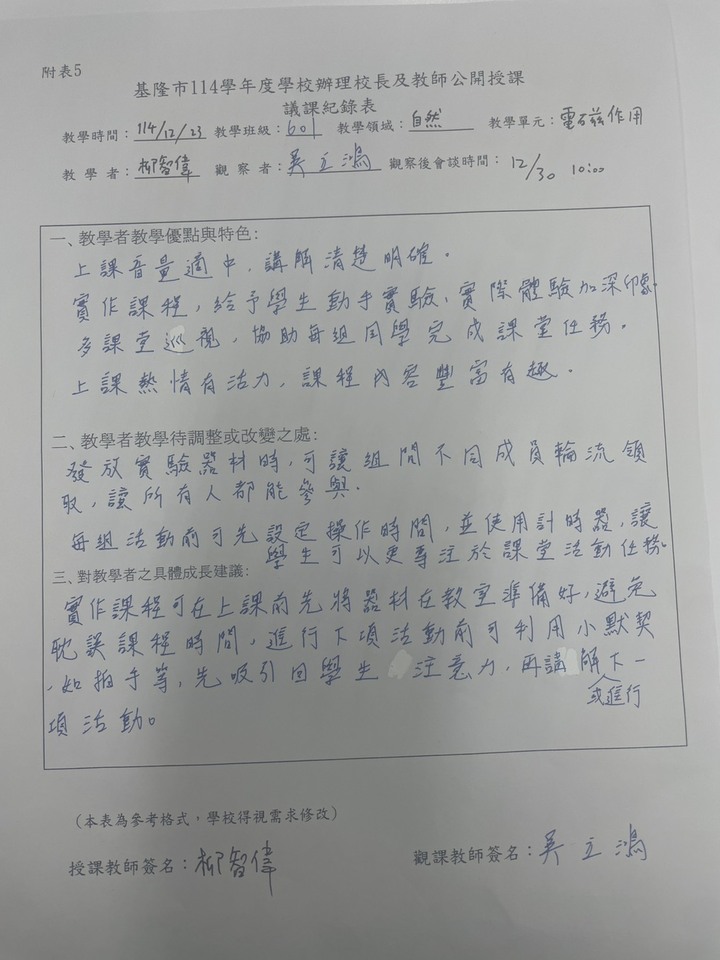 附表5
基隆市114學年度學校辦理校長及教師公開授課
議課紀錄表
教學時間：114/12/23 教學班級：601 教學領域：自然 教學單元：電磁作用
教學者：柳智偉 觀察者：吳立鴻 觀察後會談時間：12/30 10:00
一、教學者教學優點與特色：
上課音量適中，講解清楚明確。
實作課程，給予學生動手實驗、實際體驗加深印象。
多課堂巡視，協助每組同學完成課堂任務。
上課熱情有活力，課程內容豐富有趣。
二、教學者教學待調整或改變之處：
發放實驗器材時，可讓組間不同成員輪流領
取，讓所有人都能參與。
每組活動前可先設定操作時間，並使用計時器，讓
學生可以更專注於課堂活動任務。
三、對教學者之具體成長建議：
實作課程可在上課前先將器材在教室準備好，避免
耽誤課程時間，進行下項活動前可利用小默契
，如拍手等，先吸引回學生注意力，再講解下一
或進行
項活動。
（本表為參考格式，學校得視需求修改）
授課教師簽名：柳智偉 觀課教師簽名：吳立鴻